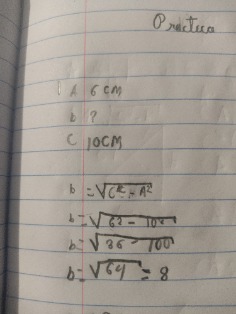 Practica
1 A 6 CM
b ?
C 10CM
b = √6² - A²
b = √6² - 10²
b = √36 - 100
b = √64 = 8